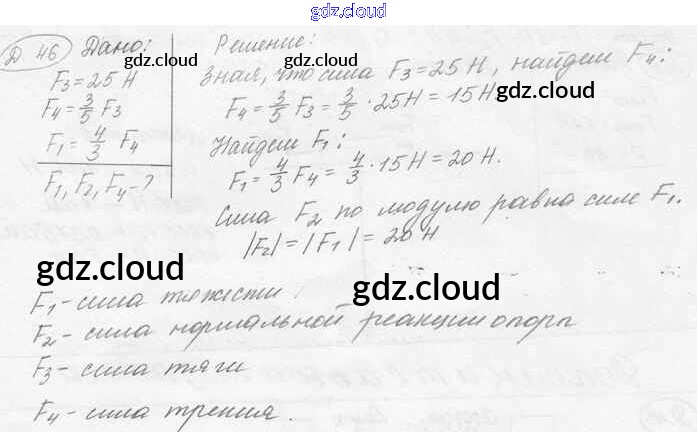 gdz.cloud
Д 46 Дано:
F₃ = 25 Н
F₄ = 3/5 F₃
F₁ = 4/3 F₄
F₁, F₂, F₄ - ?
Решение:
gdz.cloud gdz.cloud
Зная, что сила F₃ = 25 Н, найдем F₄:
F₄ = 3/5 F₃ = 3/5 · 25 Н = 15 Н
gdz.cloud
Найдем F₁:
F₁ = 4/3 F₄ = 4/3 · 15 Н = 20 Н.
Сила F₂ по модулю равна силе F₁.
|F₂| = |F₁| = 20 Н
gdz.cloud gdz.cloud
F₁ - сила тяжести
F₂ - сила нормальной реакции опоры
F₃ - сила тяги
F₄ - сила трения.